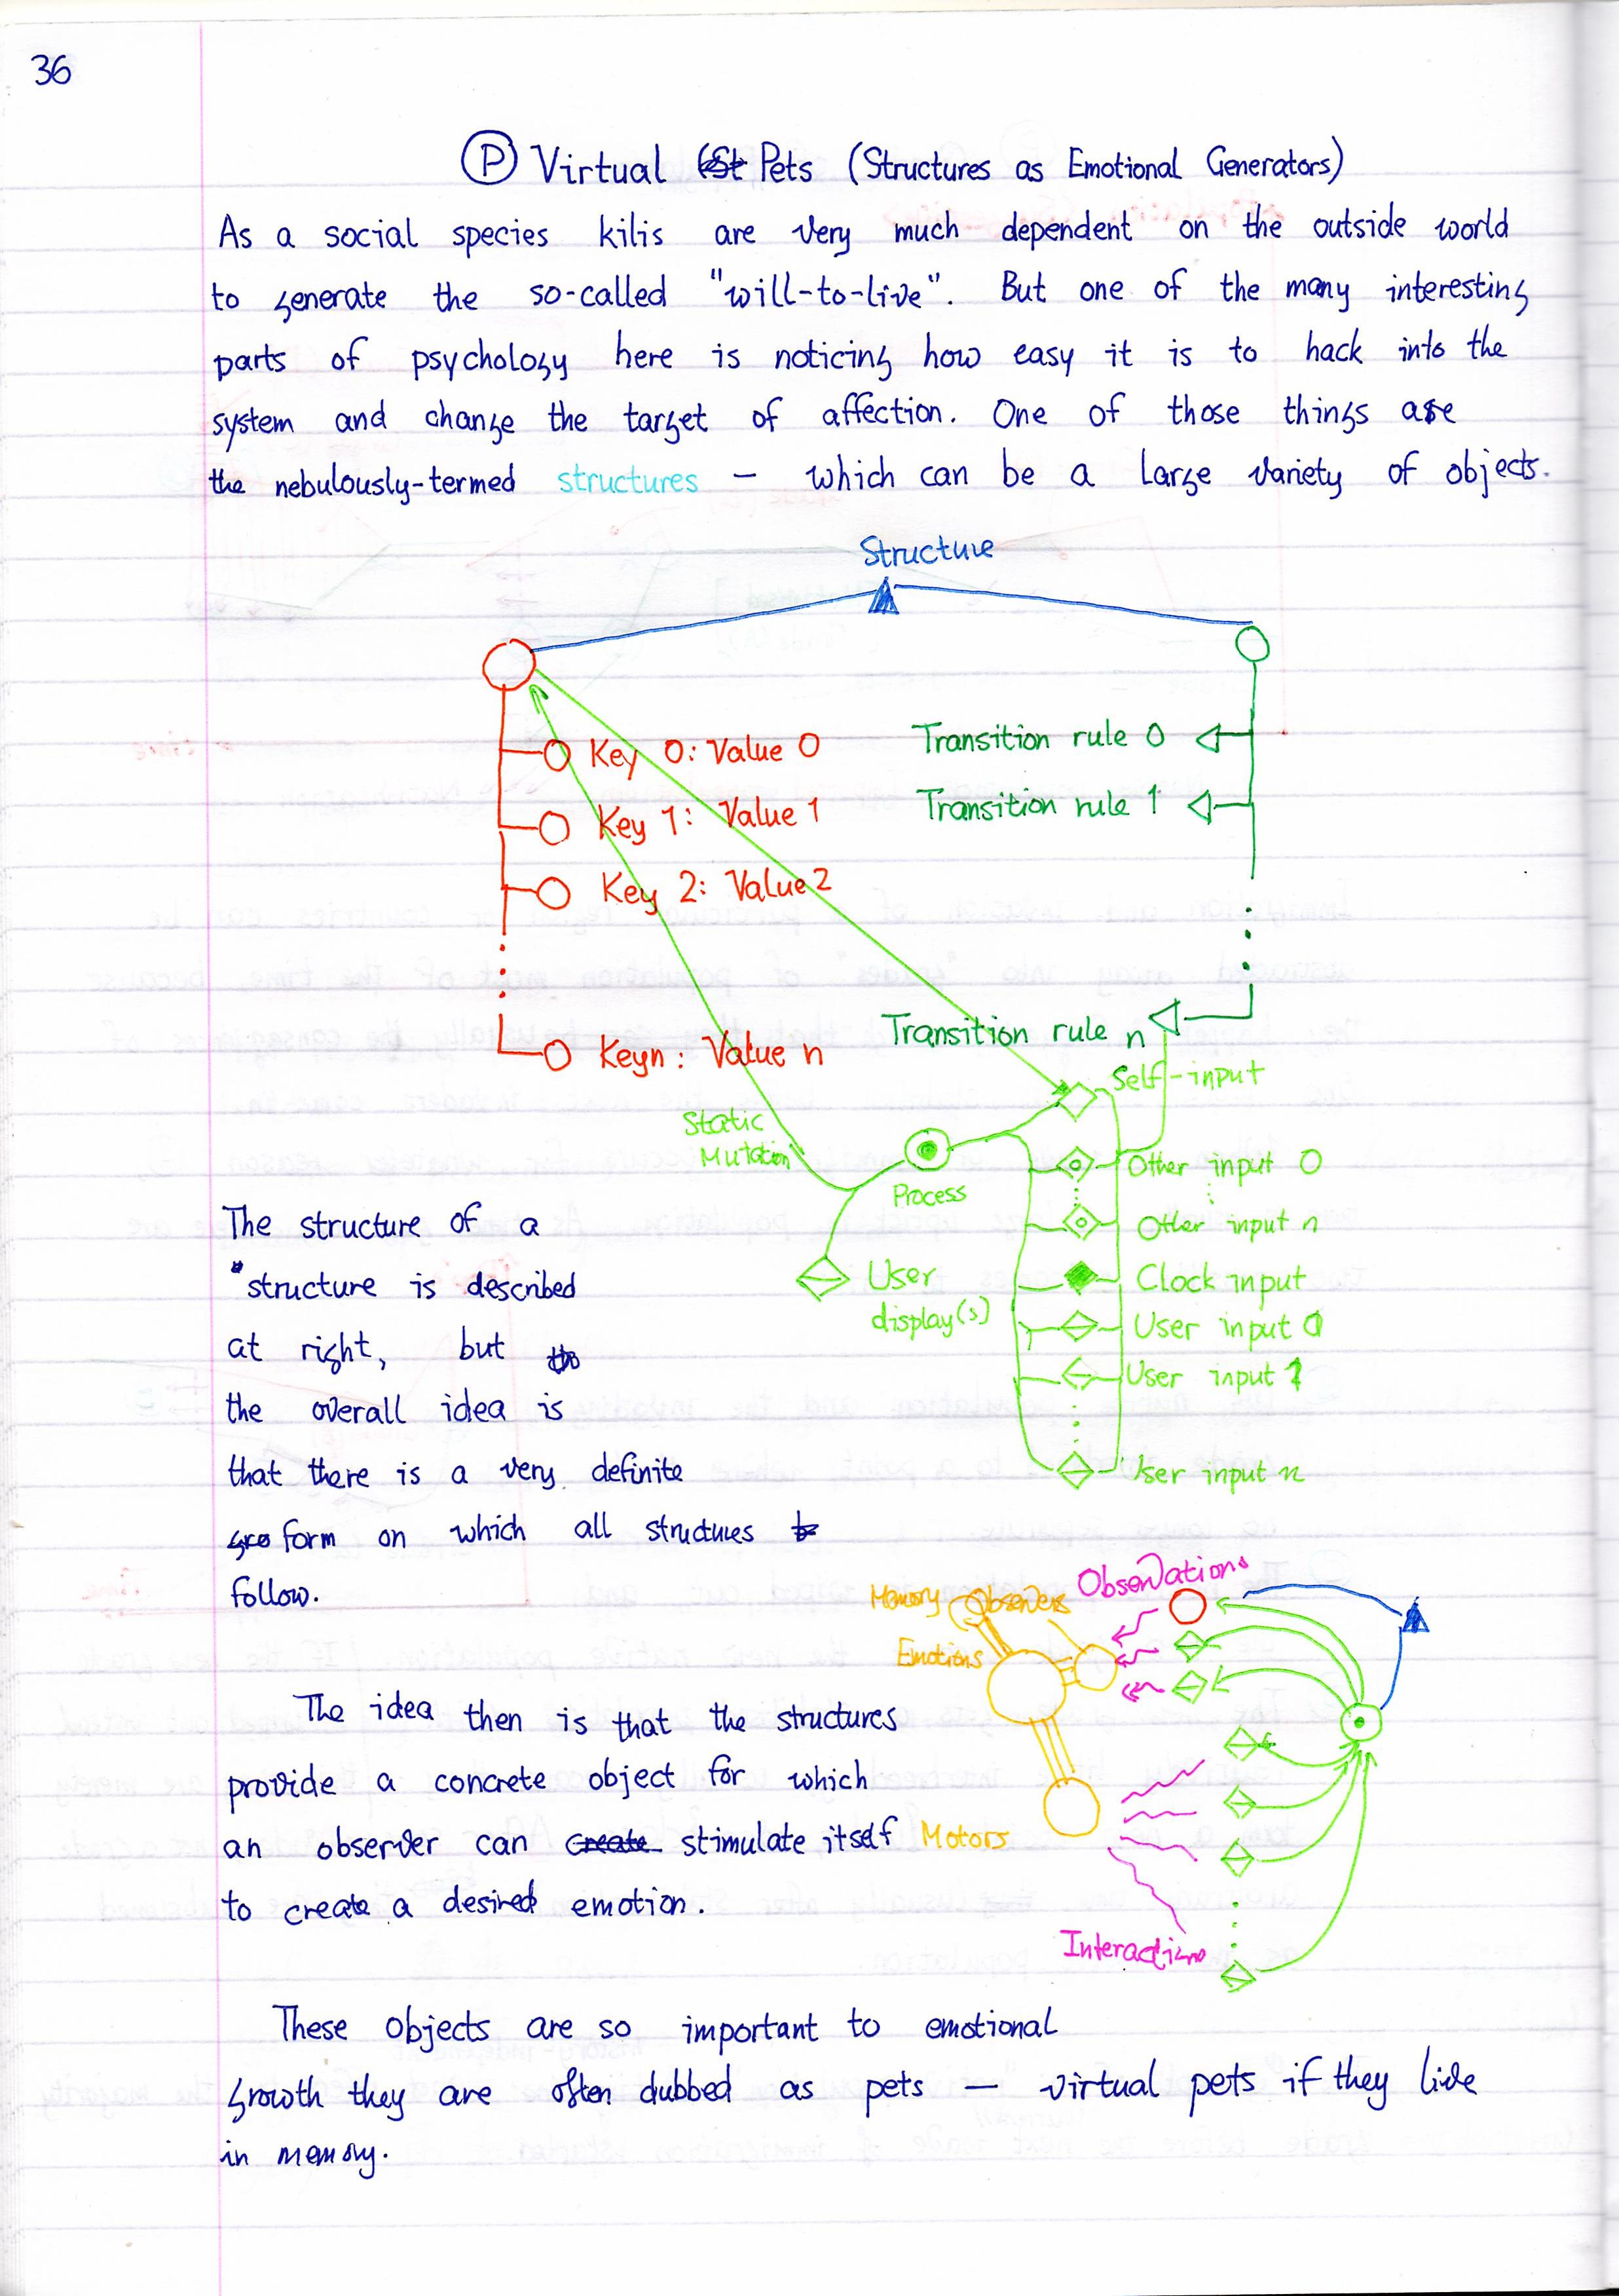 36
P Virtual Pets (Structures as Emotional Generators)
As a social species kilis are very much dependent on the outside world
to generate the so-called "will-to-live". But one of the many interesting
parts of psychology here is noticing how easy it is to hack into the
system and change the target of affection. One of those things are
the nebulously-termed structures — which can be a large variety of objects.
Structure
Key 0: Value 0
Transition rule 0
Key 1: Value 1
Transition rule 1
Key 2: Value 2
Transition rule n
Key n: Value n
Self-input
Static
Mutation
Process
Other input 0
Other input n
Clock input
User
display(s)
User input 0
User input 1
User input n
The structure of a
"structure is described
at right, but
the overall idea is
that there is a very definite
form on which all structures
follow.
Observations
Memory Observers
Emotions
The idea then is that the structures
provide a concrete object for which
an observer can create stimulate itself
Motors
to create a desired emotion.
Interactions
These objects are so important to emotional
growth they are often dubbed as pets — virtual pets if they live
in memory.